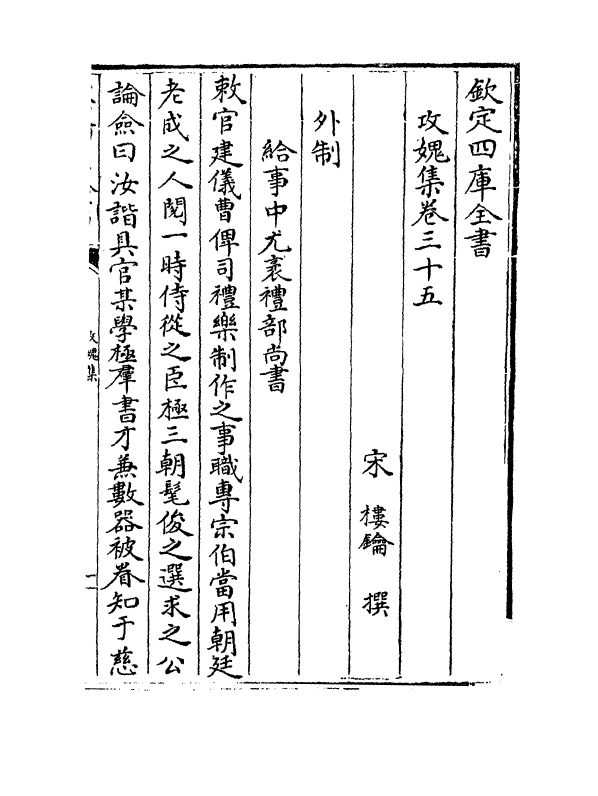 欽定四庫全書
攻媿集卷三十五
宋 樓鑰 撰
外制
給事中尤袤禮部尚書
敕官建儀曹俾司禮樂制作之事職專宗伯當用朝廷
老成之人閱一時侍從之臣極三朝髦俊之選求之公
論僉曰汝諧具官某學極羣書才兼數器被眷知于慈
攻媿集
一